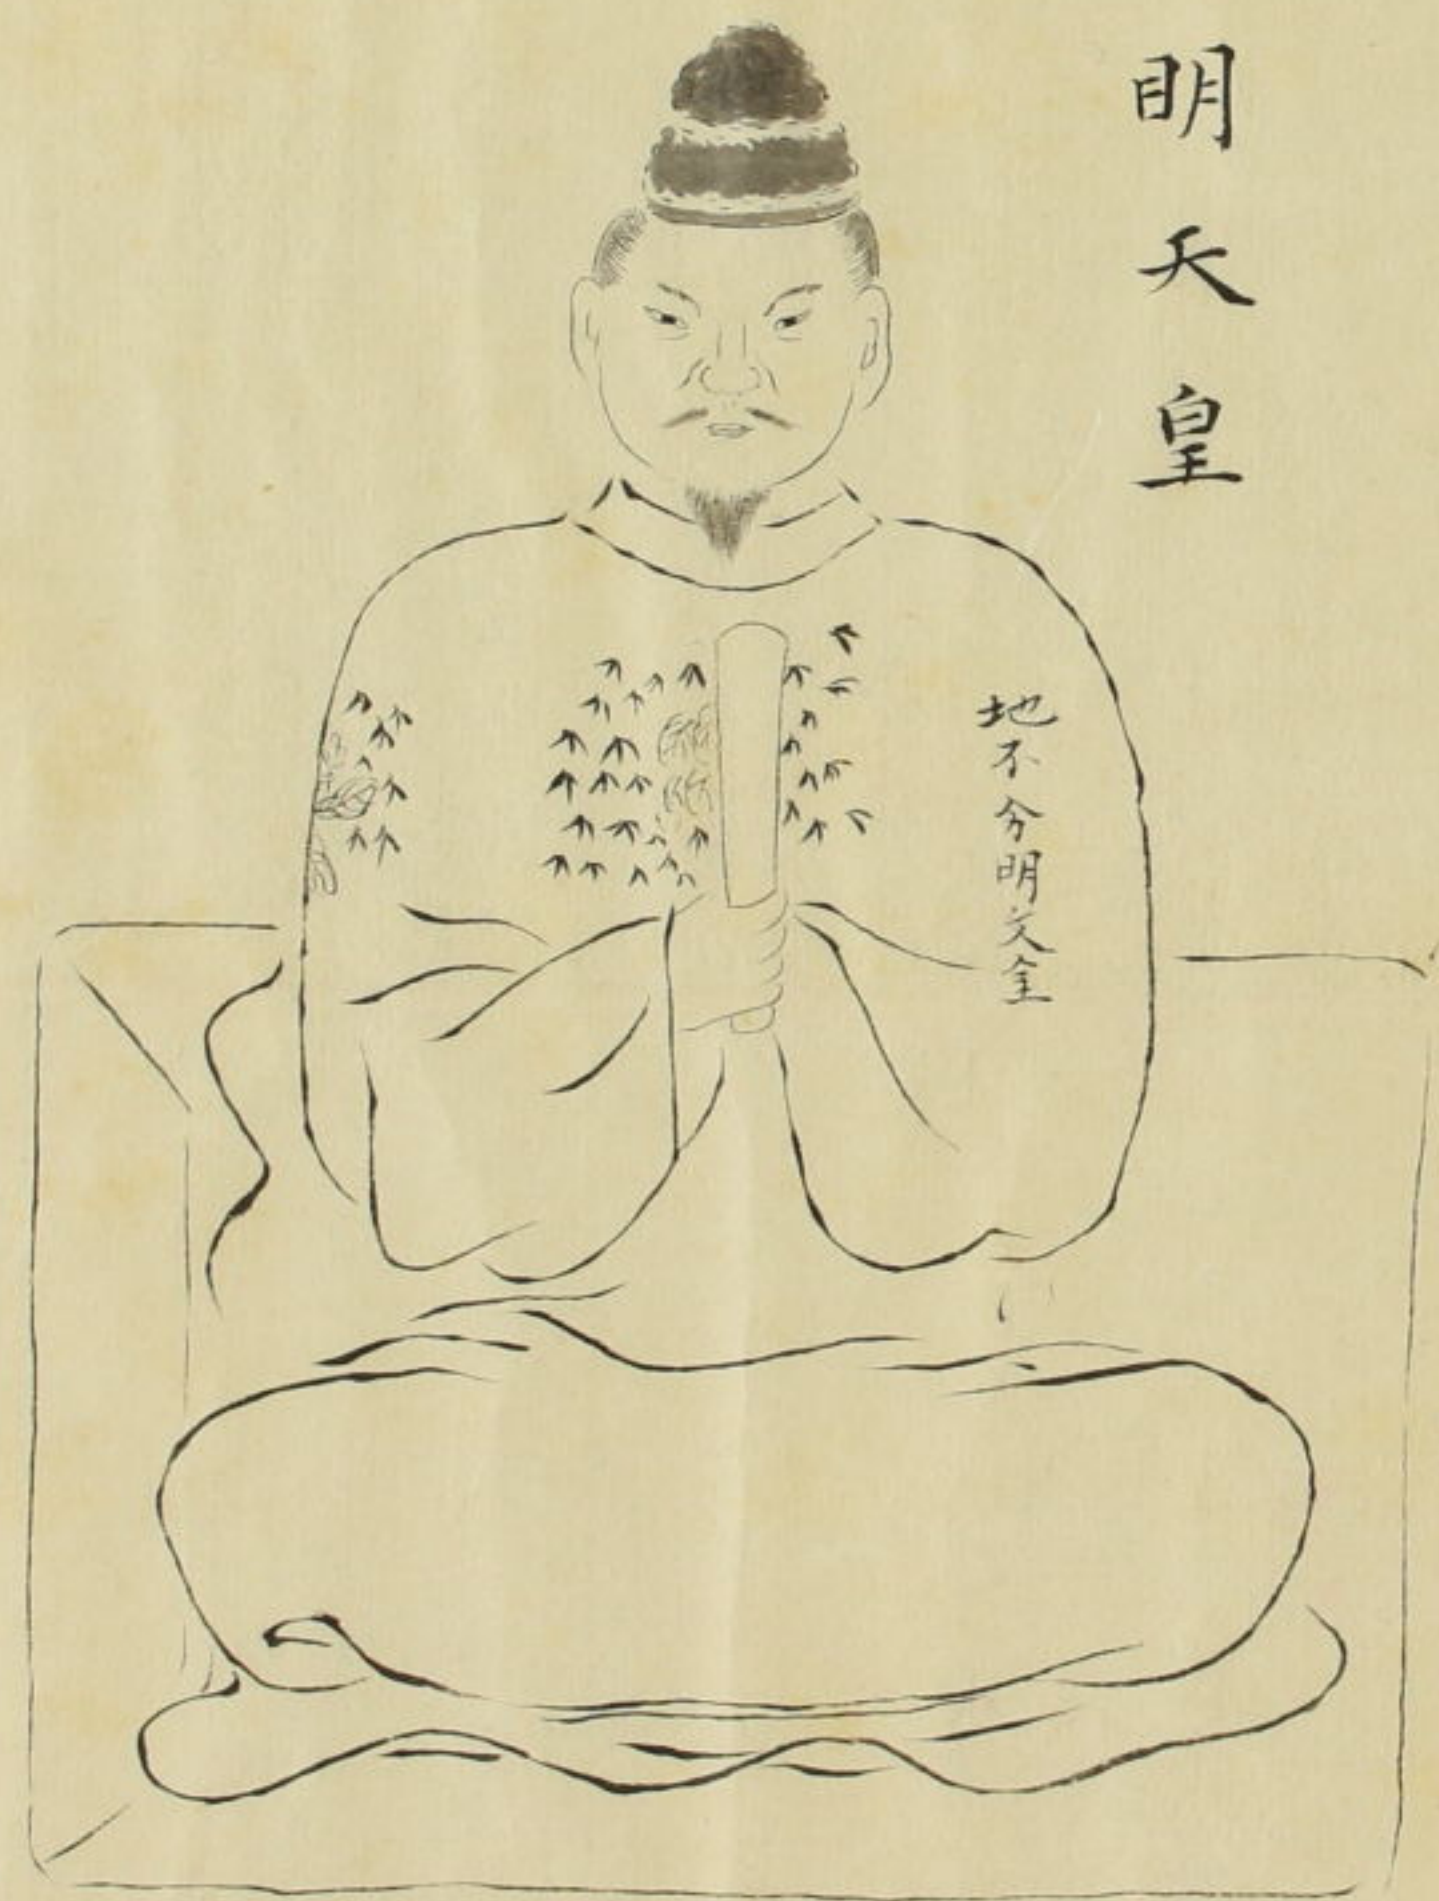 明天皇
地不分明文金